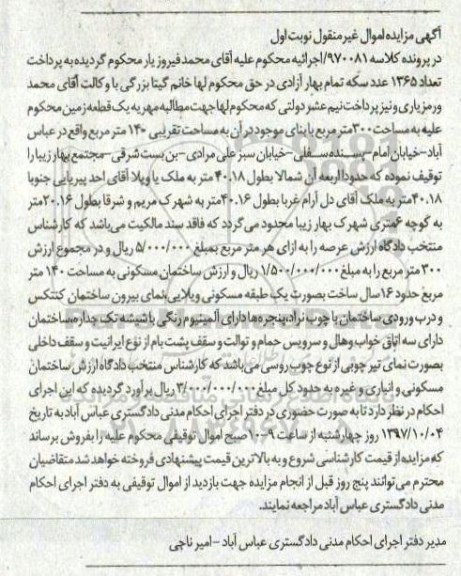 آگهی مزایده اموال غیر منقول نوبت اول
در پرونده کلاسه ۹۷۰۰۸۱/اجرائیه محکوم علیه آقای محمد فیروز یار محکوم گردیده به پرداخت
تعداد ۱۳۶۵ عدد سکه تمام بهار آزادی در حق محکوم لها خانم گیتا بزرگی با وکالت آقای محمد
ورمزیاری و نیز پرداخت نیم عشر دولتی که محکوم لها جهت مطالبه مهریه یک قطعه زمین محکوم
علیه به مساحت ۳۰۰ متر مربع با بنای موجود در آن به مساحت تقریبی ۱۴۰ متر مربع واقع در عباس
آباد-خیابان امام-پسنده سفلی-خیابان سبز علی مرادی-بن بست شرقی-مجتمع بهار زیبا را
توقیف نموده که حدود اربعه آن شمالا بطول ۴۰.۱۸ متر به ملک یا ویلا آقای احد پیریایی جنوبا
۴۰.۱۸ متر به ملک آقای دل آرام غربا بطول ۲۰.۱۶ متر به شهرک مریم و شرقا بطول ۲۰.۱۶ متر
به کوچه ۶ متری شهرک بهار زیبا محدود می گردد که فاقد سند مالکیت می باشد که کارشناس
منتخب دادگاه ارزش عرصه را به ازای هر متر مربع بمبلغ ۵/۰۰۰/۰۰۰ ریال و در مجموع ارزش
۳۰۰ متر مربع را به مبلغ ۱/۵۰۰/۰۰۰/۰۰۰ ریال و ارزش ساختمان مسکونی به مساحت ۱۴۰ متر
مربع حدود ۱۶ سال ساخت بصورت یک طبقه مسکونی ویلایی نمای بیرون ساختمان کنتکس
و درب ورودی ساختمان با چوب نراد پنجره ها دارای آلمینیوم رنگی با شیشه تک جداره ساختمان
دارای سه اتاق خواب وهال و سرویس حمام و توالت و سقف پشت بام از نوع ایرانیت و سقف داخلی
بصورت نمای تیر چوبی از نوع چوب روسی می باشد که کارشناس منتخب دادگاه ارزش ساختمان
مسکونی و انباری و غیره به حدود کل مبلغ ۳/۰۰۰/۰۰۰/۰۰۰ ریال برآورد گردیده که این اجرای
احکام در نظر دارد تا به صورت حضوری در دفتر اجرای احکام مدنی دادگستری عباس آباد به تاریخ
۱۳۹۷/۱۰/۰۴ روز چهارشنبه از ساعت ۹-۱۰ صبح اموال توقیفی محکوم علیه را بفروش برساند
که مزایده از قیمت کارشناسی شروع و به بالاترین قیمت پیشنهادی فروخته خواهد شد متقاضیان
محترم می توانند پنج روز قبل از انجام مزایده جهت بازدید از اموال توقیفی به دفتر اجرای احکام
مدنی دادگستری عباس آباد مراجعه نمایند.
مدیر دفتر اجرای احکام مدنی دادگستری عباس آباد - امیر ناجی